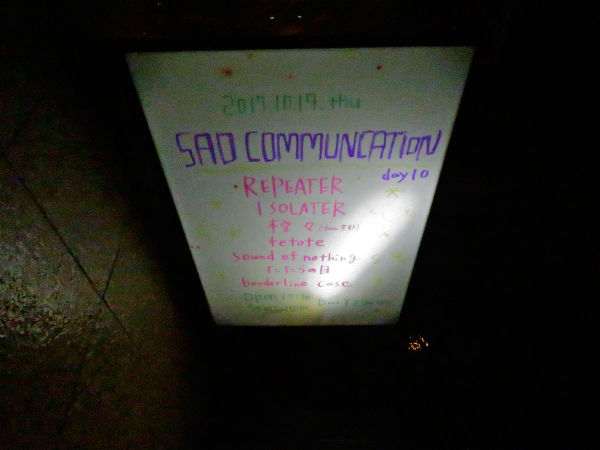 2017.10.19.thu
SAD COMMUNCATION
day10
REPEATER
ISOLATER
tetote
sound of nothing
borderline case
Open
Start